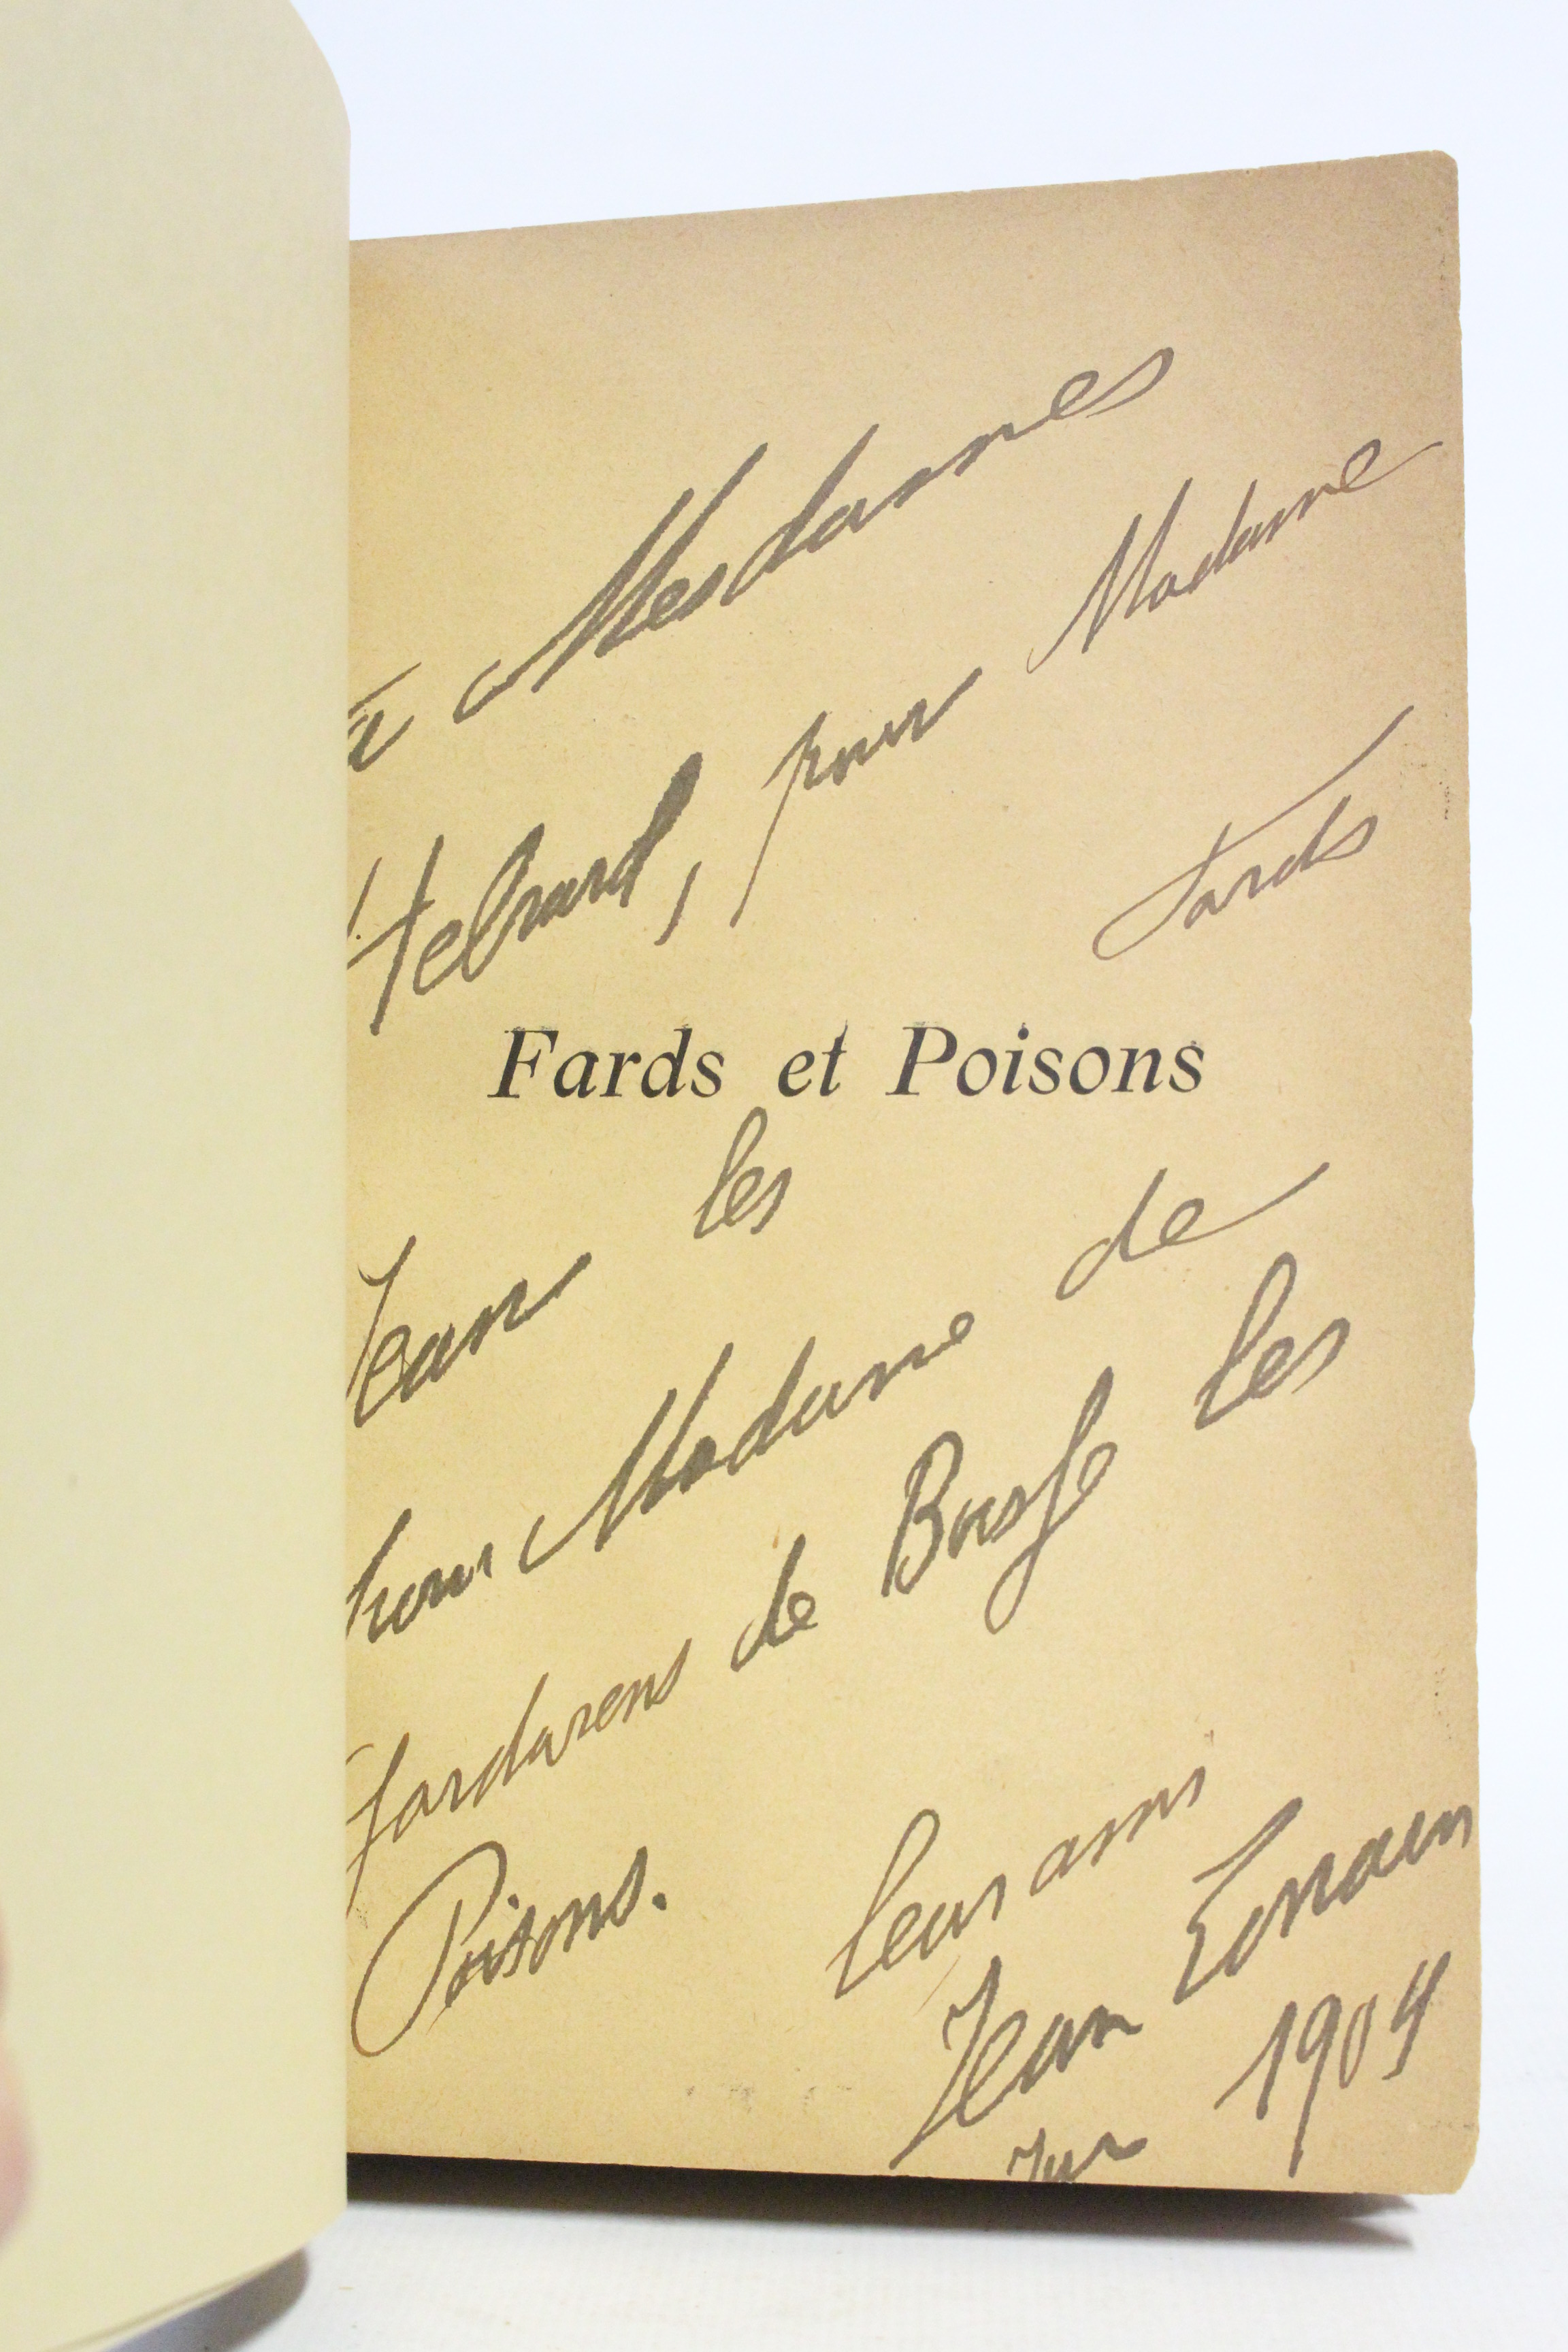 à Mesdames
Hebrard, pour Madame
Jean les Fards
Fards et Poisons
pour Madame de
de les
Poisons.
leur ami
Jean Lorrain
Jun 1904